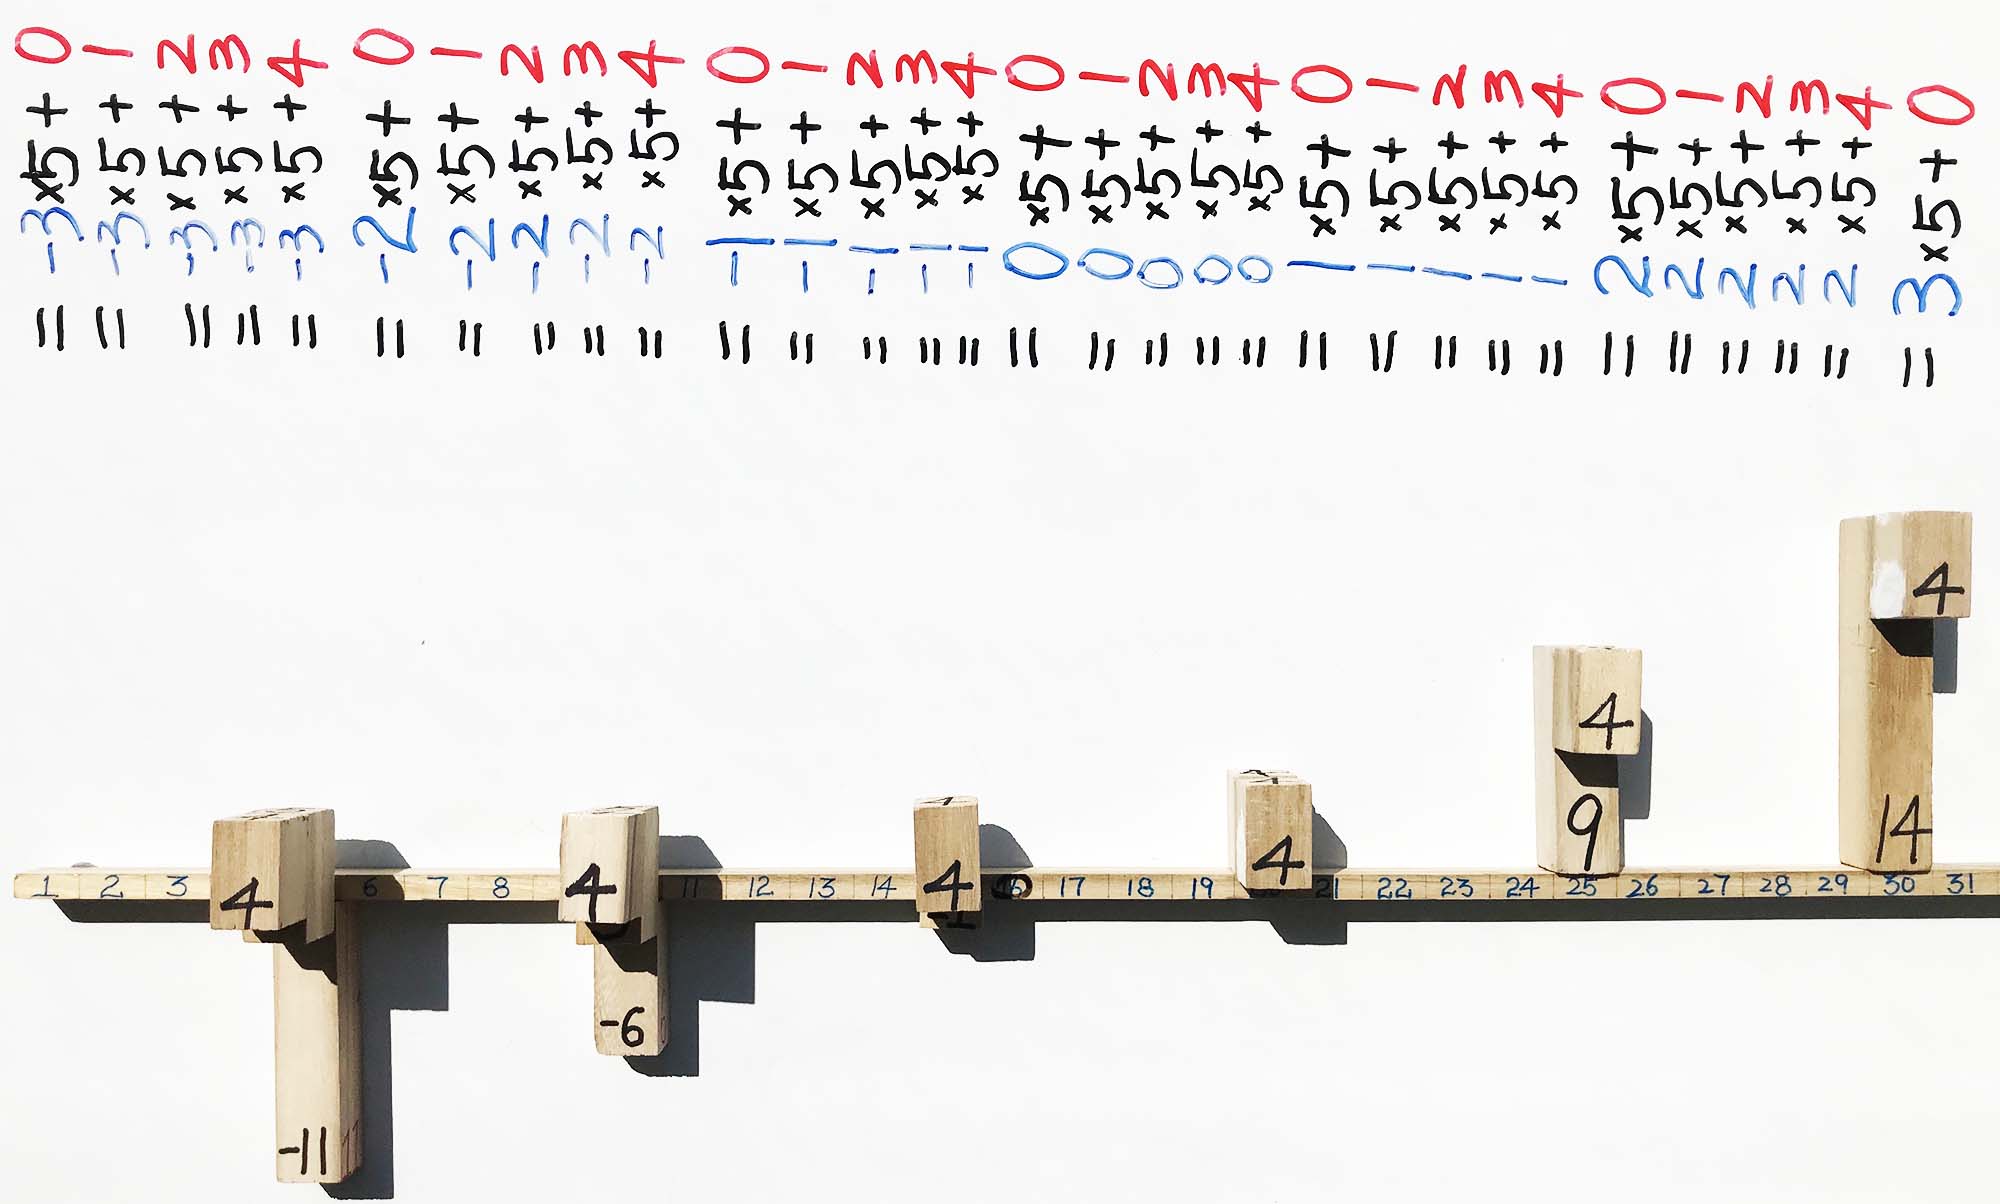 = -3 ×5 + 0
= -3 ×5 + 1
= -3 ×5 + 2
= -3 ×5 + 3
= -3 ×5 + 4
= -2 ×5 + 0
= -2 ×5 + 1
= -2 ×5 + 2
= -2 ×5 + 3
= -2 ×5 + 4
= -1 ×5 + 0
= -1 ×5 + 1
= -1 ×5 + 2
= -1 ×5 + 3
= -1 ×5 + 4
= 0 ×5 + 0
= 0 ×5 + 1
= 0 ×5 + 2
= 0 ×5 + 3
= 0 ×5 + 4
= 1 ×5 + 0
= 1 ×5 + 1
= 1 ×5 + 2
= 1 ×5 + 3
= 1 ×5 + 4
= 2 ×5 + 0
= 2 ×5 + 1
= 2 ×5 + 2
= 2 ×5 + 3
= 2 ×5 + 4
= 3 ×5 + 0
4
4
9
14
4
4
4
4
1 2 3 6 7 8 11 12 13 14 16 17 18 19 21 22 23 24 25 26 27 28 29 30 31
-1
-6
-11